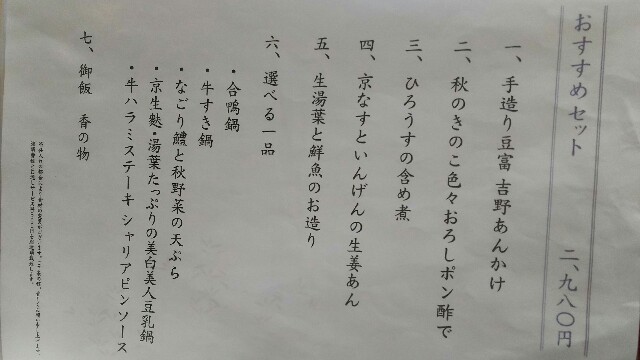 おすすめセット　二、九八〇円
一、手造り豆富 吉野あんかけ
二、秋のきのこ色々おろしポン酢で
三、ひろうすの含め煮
四、京なすといんげんの生姜あん
五、生湯葉と鮮魚のお造り
六、選べる一品
・合鴨鍋
・牛すき鍋
・なごり鱧と秋野菜の天ぷら
・京生麩・湯葉たっぷりの美白美人豆乳鍋
・牛ハラミステーキ シャリアピンソース
七、御飯　香の物